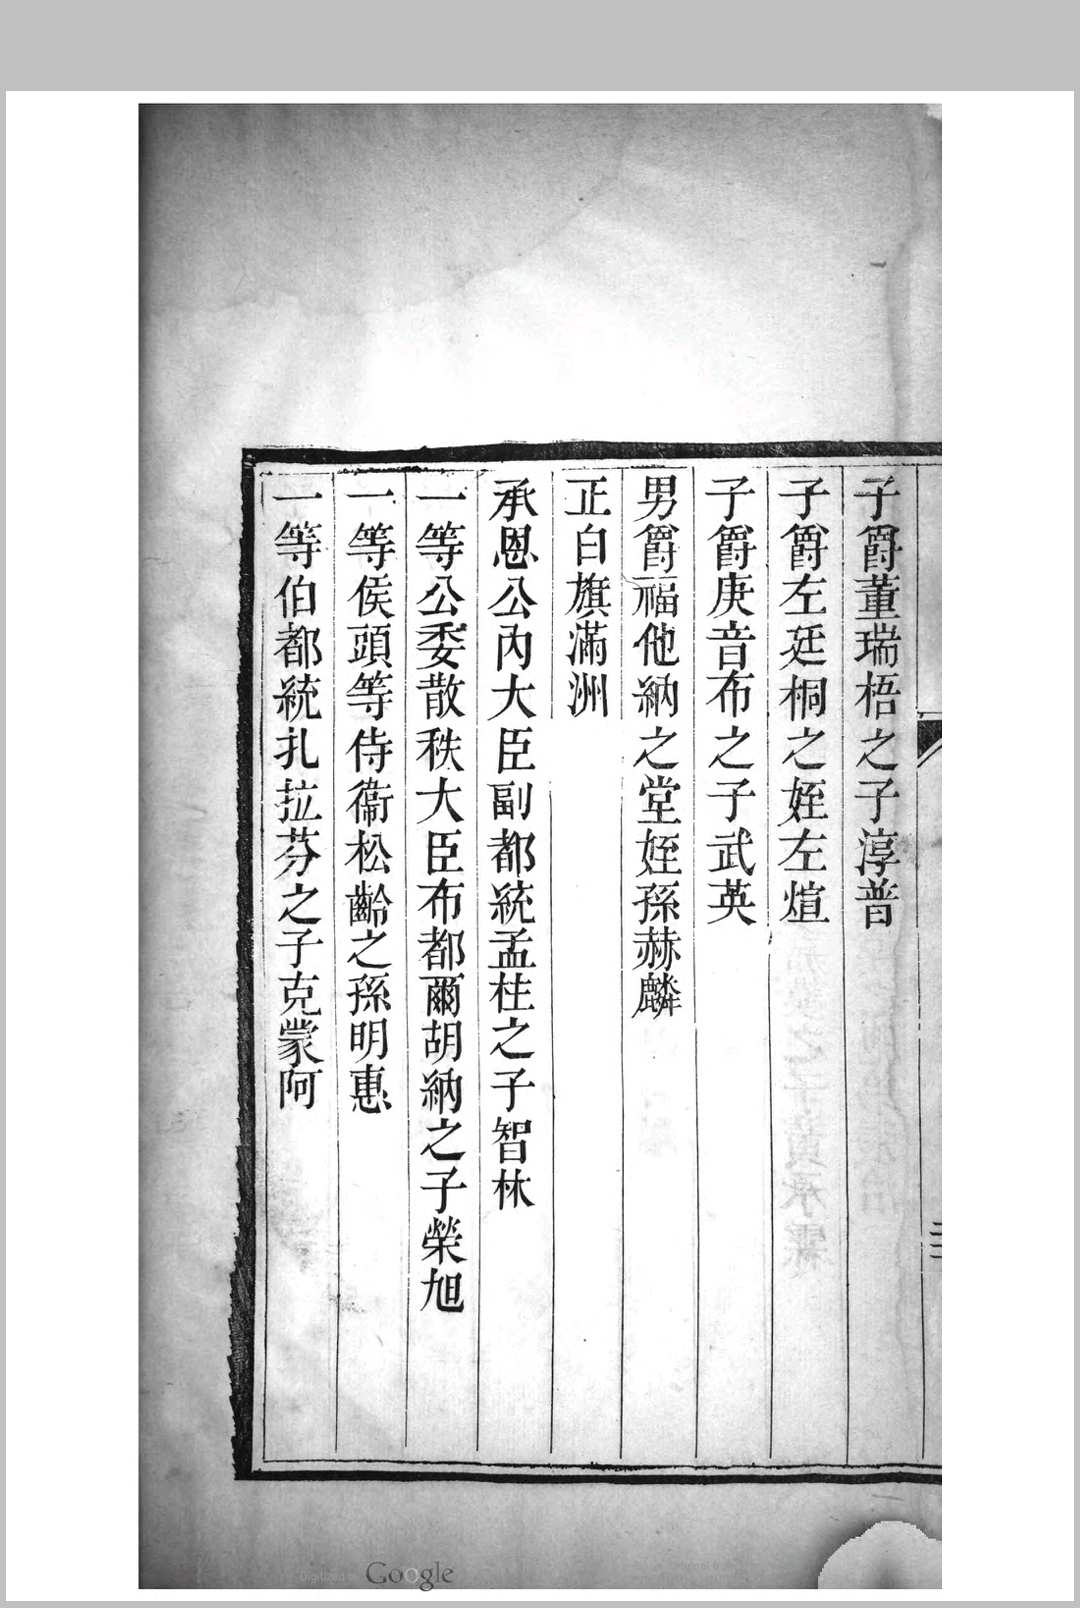 子爵董瑞梧之子淳普
子爵左廷桐之姪左煊
子爵庚音布之子武英
男爵福他納之堂姪孫赫麟
正白旗滿洲
承恩公內大臣副都統孟柱之子智林
一等公委散秩大臣布都爾胡納之子榮旭
一等侯頭等侍衞松齡之孫明惠
一等伯都統扎拉芬之子克蒙阿
Digitized by Google